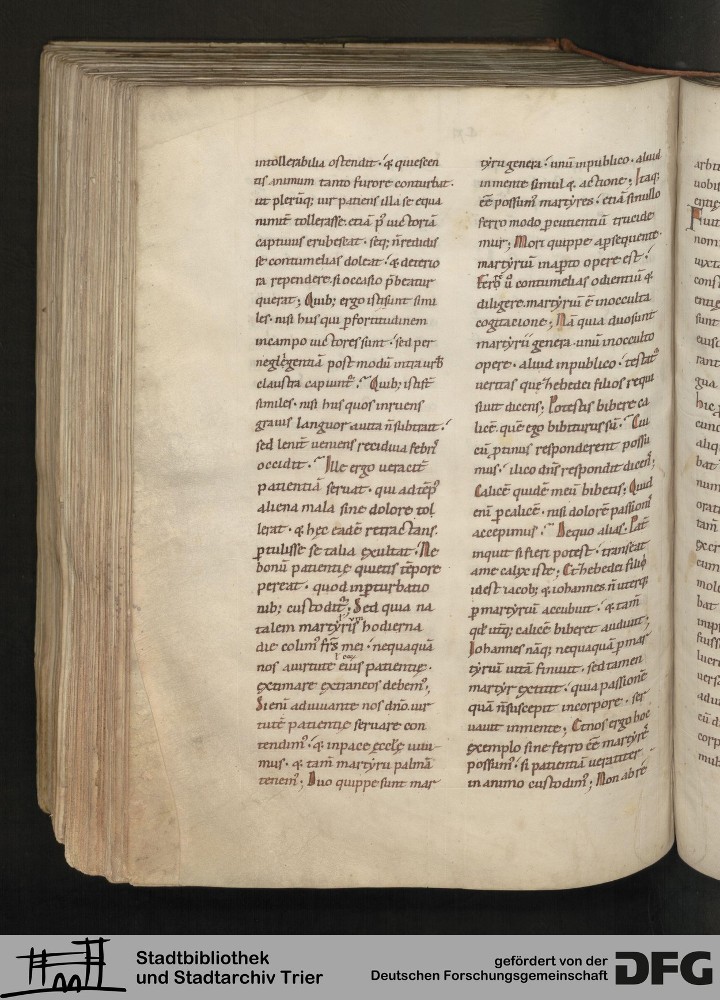 intollerabilia ostendit · & quiescen
tis animum tanto furore conturbat ·
ut pleruq; uir patiens illa se equa
nimit̄ tollerasse · etiā p̄ uictoriā
captiuus erubescat · seq; n̄ reddidis
se contumelias doleat · & deterio
ra rependere · si occasio p̄beatur
querat; Quib; ergo isti sunt simi
les · nisi his qui p fortitudinem
in campo uictores sunt · sed per
neglegentiā post modū intra urb̄
claustra capiunt̄ · Quib; isti s̄t
similes · nisi his quos irruens
grauis languor a uita n̄ subtrait ·
sed lenit̄ ueniens recidiua febris
occidit · Ille ergo ueracit̄
patientiā seruat · qui ad tēp̄
aliena mala sine dolore tol
lerat · & hęc eadē retractans ·
ptulisse se talia exultat · Ne
bonū patientię quietis tēpore
pereat · quod in pturbatio
nib; custodit̄; Sed quia na
talem martyris hodierna
die colim̄ frs̄ mei · nequaquā
nos a uirtute eius patientię ·
extimare extraneos debem̄;
Si enī adiuuante nos dn̄o · uir
tutē patientię seruare con
tendim̄ · & in pace ęcclę uiui
mus · & tam̄ martyrii palmā
tenem̄; Duo quippe sunt mar
tyrii genera · unū in publico · aliud
in mente simul & actione; Itaq;
eē possum̄ martyres · etiā si nullo
ferro modo pcutientiū trucide
mur; Mori quippe a psequente ·
martyriū in apto opere est ·
Ferre ū contumelias odientiū &
diligere · martyriū ē in occulta
cogitatione; Nā quia duo sunt
martyrii genera · unū in occulto
opere · aliud in publico · testat̄
ueritas que zebedei filios requi
siuit dicens; Potestis bibere ca
licē quē ego bibiturus sū · Cui
cū ptinus responderent possu
mus · ilico dn̄s respondit dicen̄;
Calicē quidē meū bibetis; Quid
enī p calicē · nisi dolorē passionis
accepimus · De quo alias · Pat̄
inquit si fieri potest · transeat
a me calyx iste; Et zebedei filii
id est iacob; & iohannes n̄ uterq;
p martyriū occubuit · & tam̄
qd̄ ut̄q; calicē biberet audiuit;
Iohannes nāq; nequaquā p mar
tyriū uitā finiuit · sed tamen
martyr extitit · quia passionē
quā n̄ suscepit in corpore · ser
uauit in mente; Et nos ergo hoc
exemplo sine ferro eē martyres
possum̄ · si patientiā ueraciter
in animo custodim̄; Non ab rē
Stadtbibliothek
und Stadtarchiv Trier
gefördert von der
Deutschen Forschungsgemeinschaft
DFG